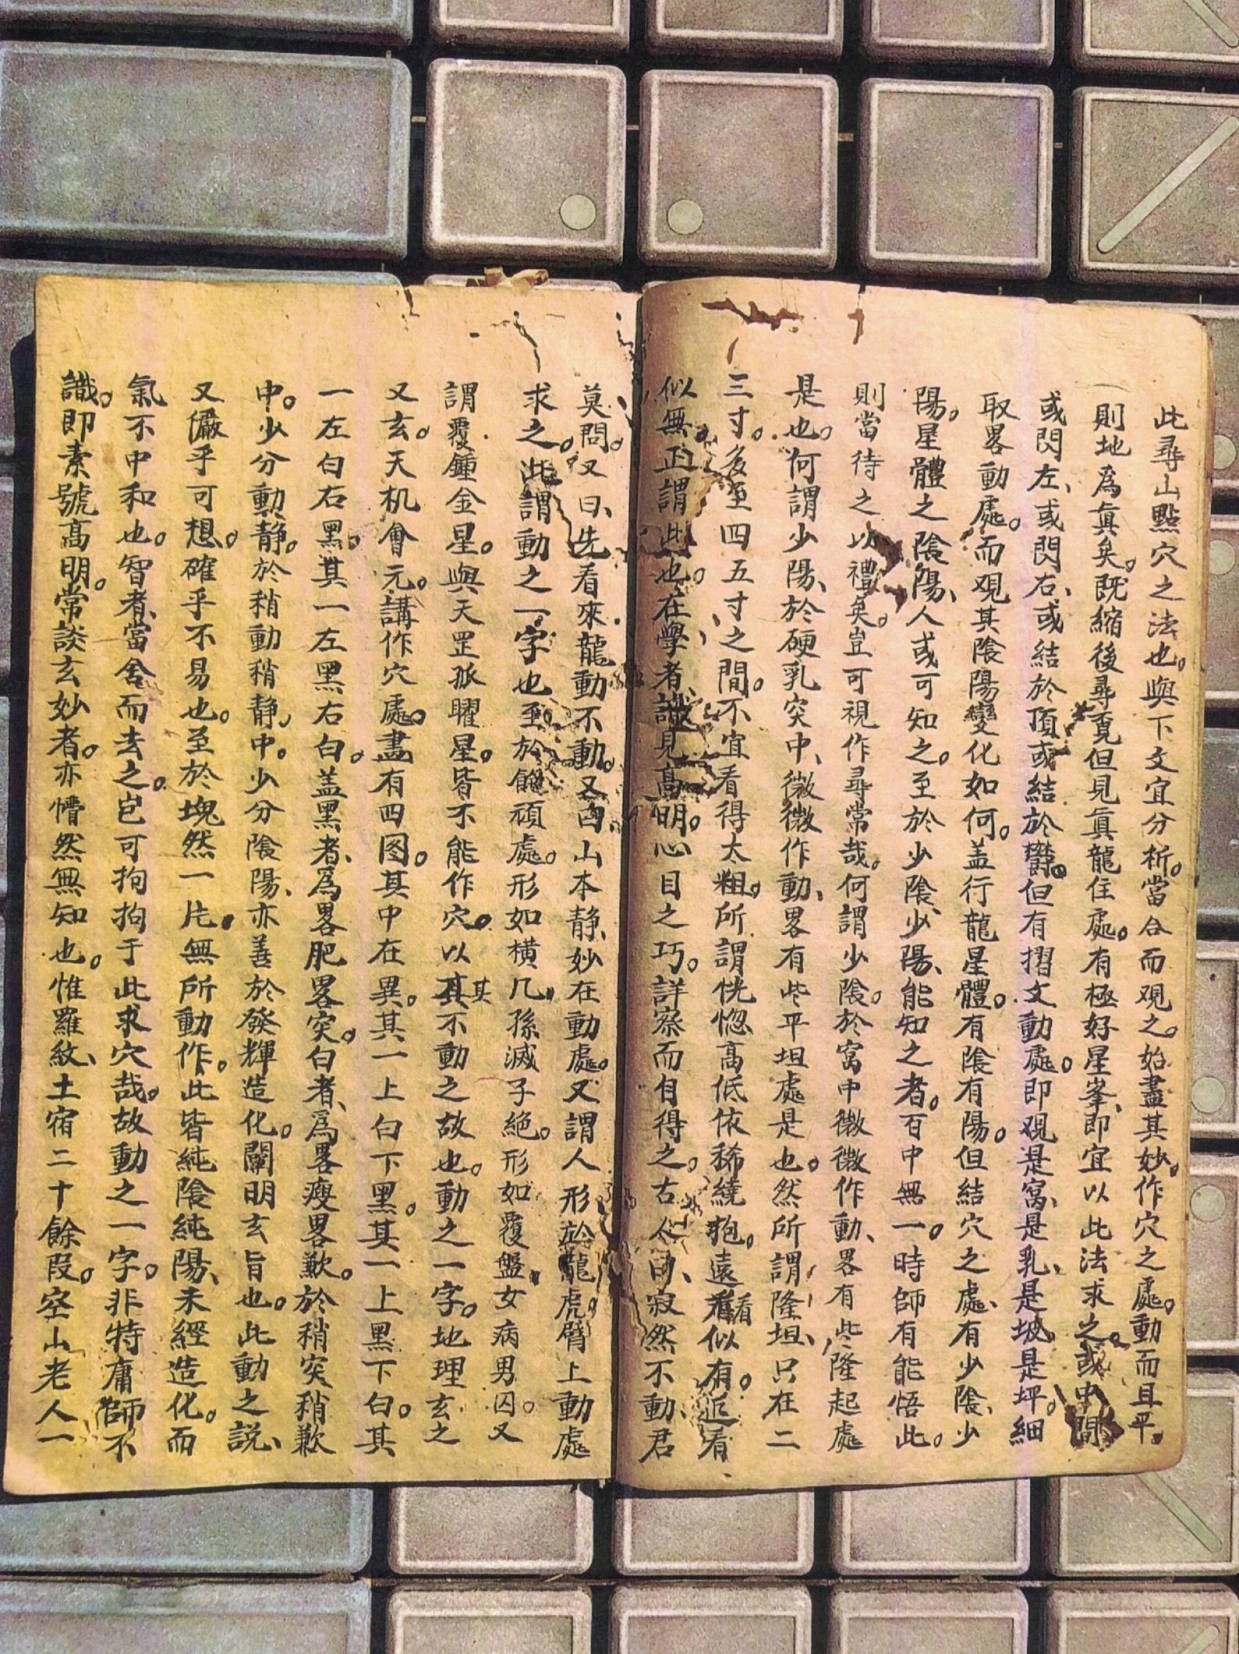 此尋山點穴之法也。與下文宜分析。當合而观之。始盡其妙。作穴之處。動而且平。
則地為真矣。既縮後尋覓但見真龍住處。有極好星峯、即宜以此法求之。或中間、
或閃左、或閃右、或結於頂、或結於麓。但有摺文動處。即观是窩、是乳、是坡、是坪。細
取畧動處。而观其陰陽變化如何。盖行龍星體。有陰有陽。但結穴之處、有少陰、少
陽。星體之陰陽、人或可知之。至於少陰、少陽、能知之者。百中無一。時師有能悟此。
則當待之以禮矣。豈可視作尋常哉。何謂少陰。於窩中微微作動、畧有些隆起處
是也。何謂少陽、於硬乳突中、微微作動、畧有些平坦處是也。然所謂隆坦、只在二
三寸。多至四五寸之間。不宜看得太粗。所謂恍惚高低依稀繞抱。遠看似有。近看
似無。正謂此也。在學者識見高明。心目之巧。詳察而自得之。古人曰、寂然不動、君
莫問。又曰、先看來龍動不動。又曰山本静、妙在動處。又謂人形於龍虎臂上動處
求之。此謂動之一字也。至於飽頑處。形如橫几、孫滅子絕。形如覆盤、女病男囚。又
謂覆鍾金星。與天罡孤曜星。皆不能作穴。以其不動之故也。動之一字。地理玄之
又玄。天机會元。講作穴處。盡有四图。其中在異。其一上白下黑。其一上黑下白。其
一左白右黑。其一左黑右白。盖黑者、為畧肥畧突。白者、為畧瘦畧歉。於稍突稍歉
中。少分動静。於稍動稍静。中。少分陰陽、亦善於發輝造化。闡明玄旨也。此動之説、
又儼乎可想。確乎不易也。至於塊然一片。無所動作。此皆純陰純陽、未經造化。而
氣不中和也。智者、當舍而去之。豈可拘拘于此求穴哉。故動之一字。非特庸師不
識。即素號高明。常談玄妙者。亦懵然無知也。惟羅紋、土宿二十餘段。空山老人一